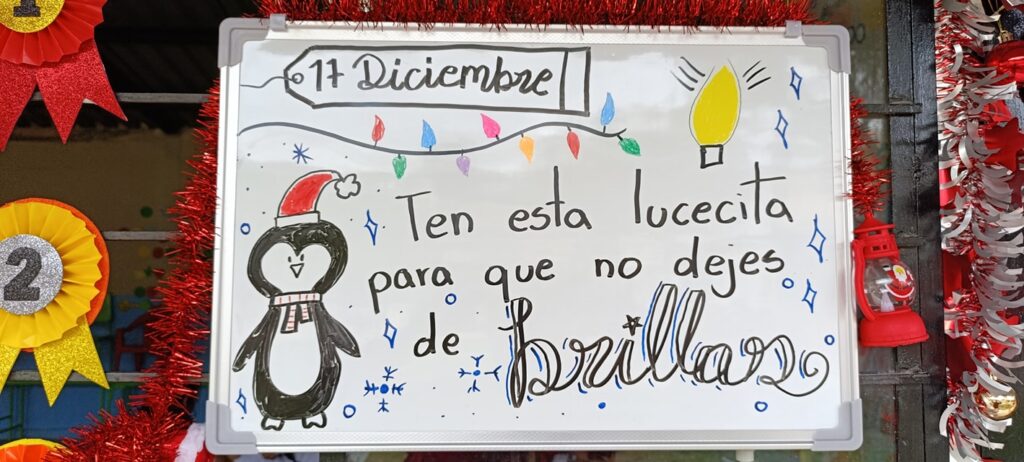 1
17 Diciembre
Ten esta lucecita
para que no dejes
de brillar
2